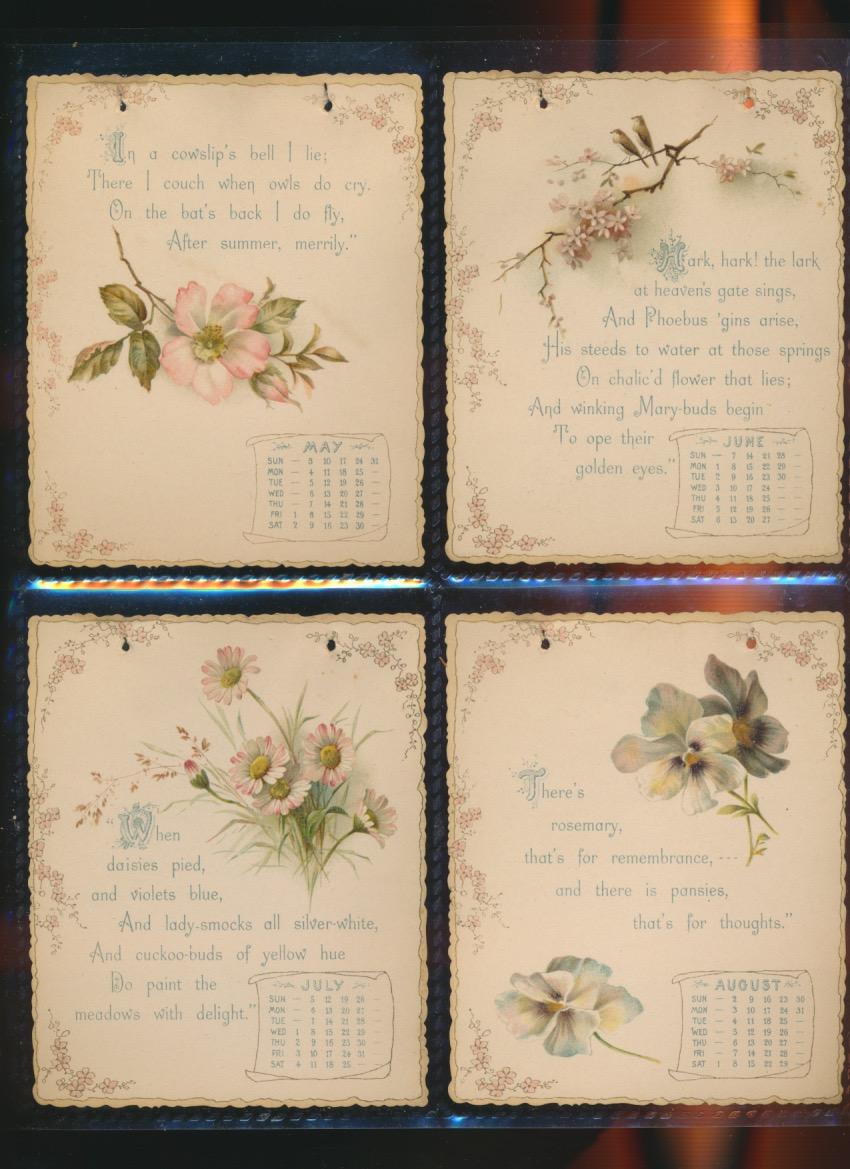 In a cowslip's bell I lie;
There I couch when owls do cry.
On the bat's back I do fly,
After summer, merrily."
MAY
SUN — 3 10 17 24 31
MON — 4 11 18 25 —
TUE — 5 12 19 26 —
WED — 6 13 20 27 —
THU — 7 14 21 28 —
FRI 1 8 15 22 29 —
SAT 2 9 16 23 30 —
Hark, hark! the lark
at heaven's gate sings,
And Phoebus 'gins arise,
His steeds to water at those springs
On chalic'd flower that lies;
And winking Mary-buds begin
To ope their
golden eyes."
JUNE
SUN — 7 14 21 28 —
MON 1 8 15 22 29 —
TUE 2 9 16 23 30 —
WED 3 10 17 24 — —
THU 4 11 18 25 — —
FRI 5 12 19 26 — —
SAT 6 13 20 27 — —
"When
daisies pied,
and violets blue,
And lady-smocks all silver-white,
And cuckoo-buds of yellow hue
Do paint the
meadows with delight."
JULY
SUN — 5 12 19 26 —
MON — 6 13 20 27 —
TUE — 7 14 21 28 —
WED 1 8 15 22 29 —
THU 2 9 16 23 30 —
FRI 3 10 17 24 31 —
SAT 4 11 18 25 — —
There's
rosemary,
that's for remembrance, ---
and there is pansies,
that's for thoughts."
AUGUST
SUN — 2 9 16 23 30
MON — 3 10 17 24 31
TUE — 4 11 18 25 —
WED — 5 12 19 26 —
THU — 6 13 20 27 —
FRI — 7 14 21 28 —
SAT 1 8 15 22 29 —